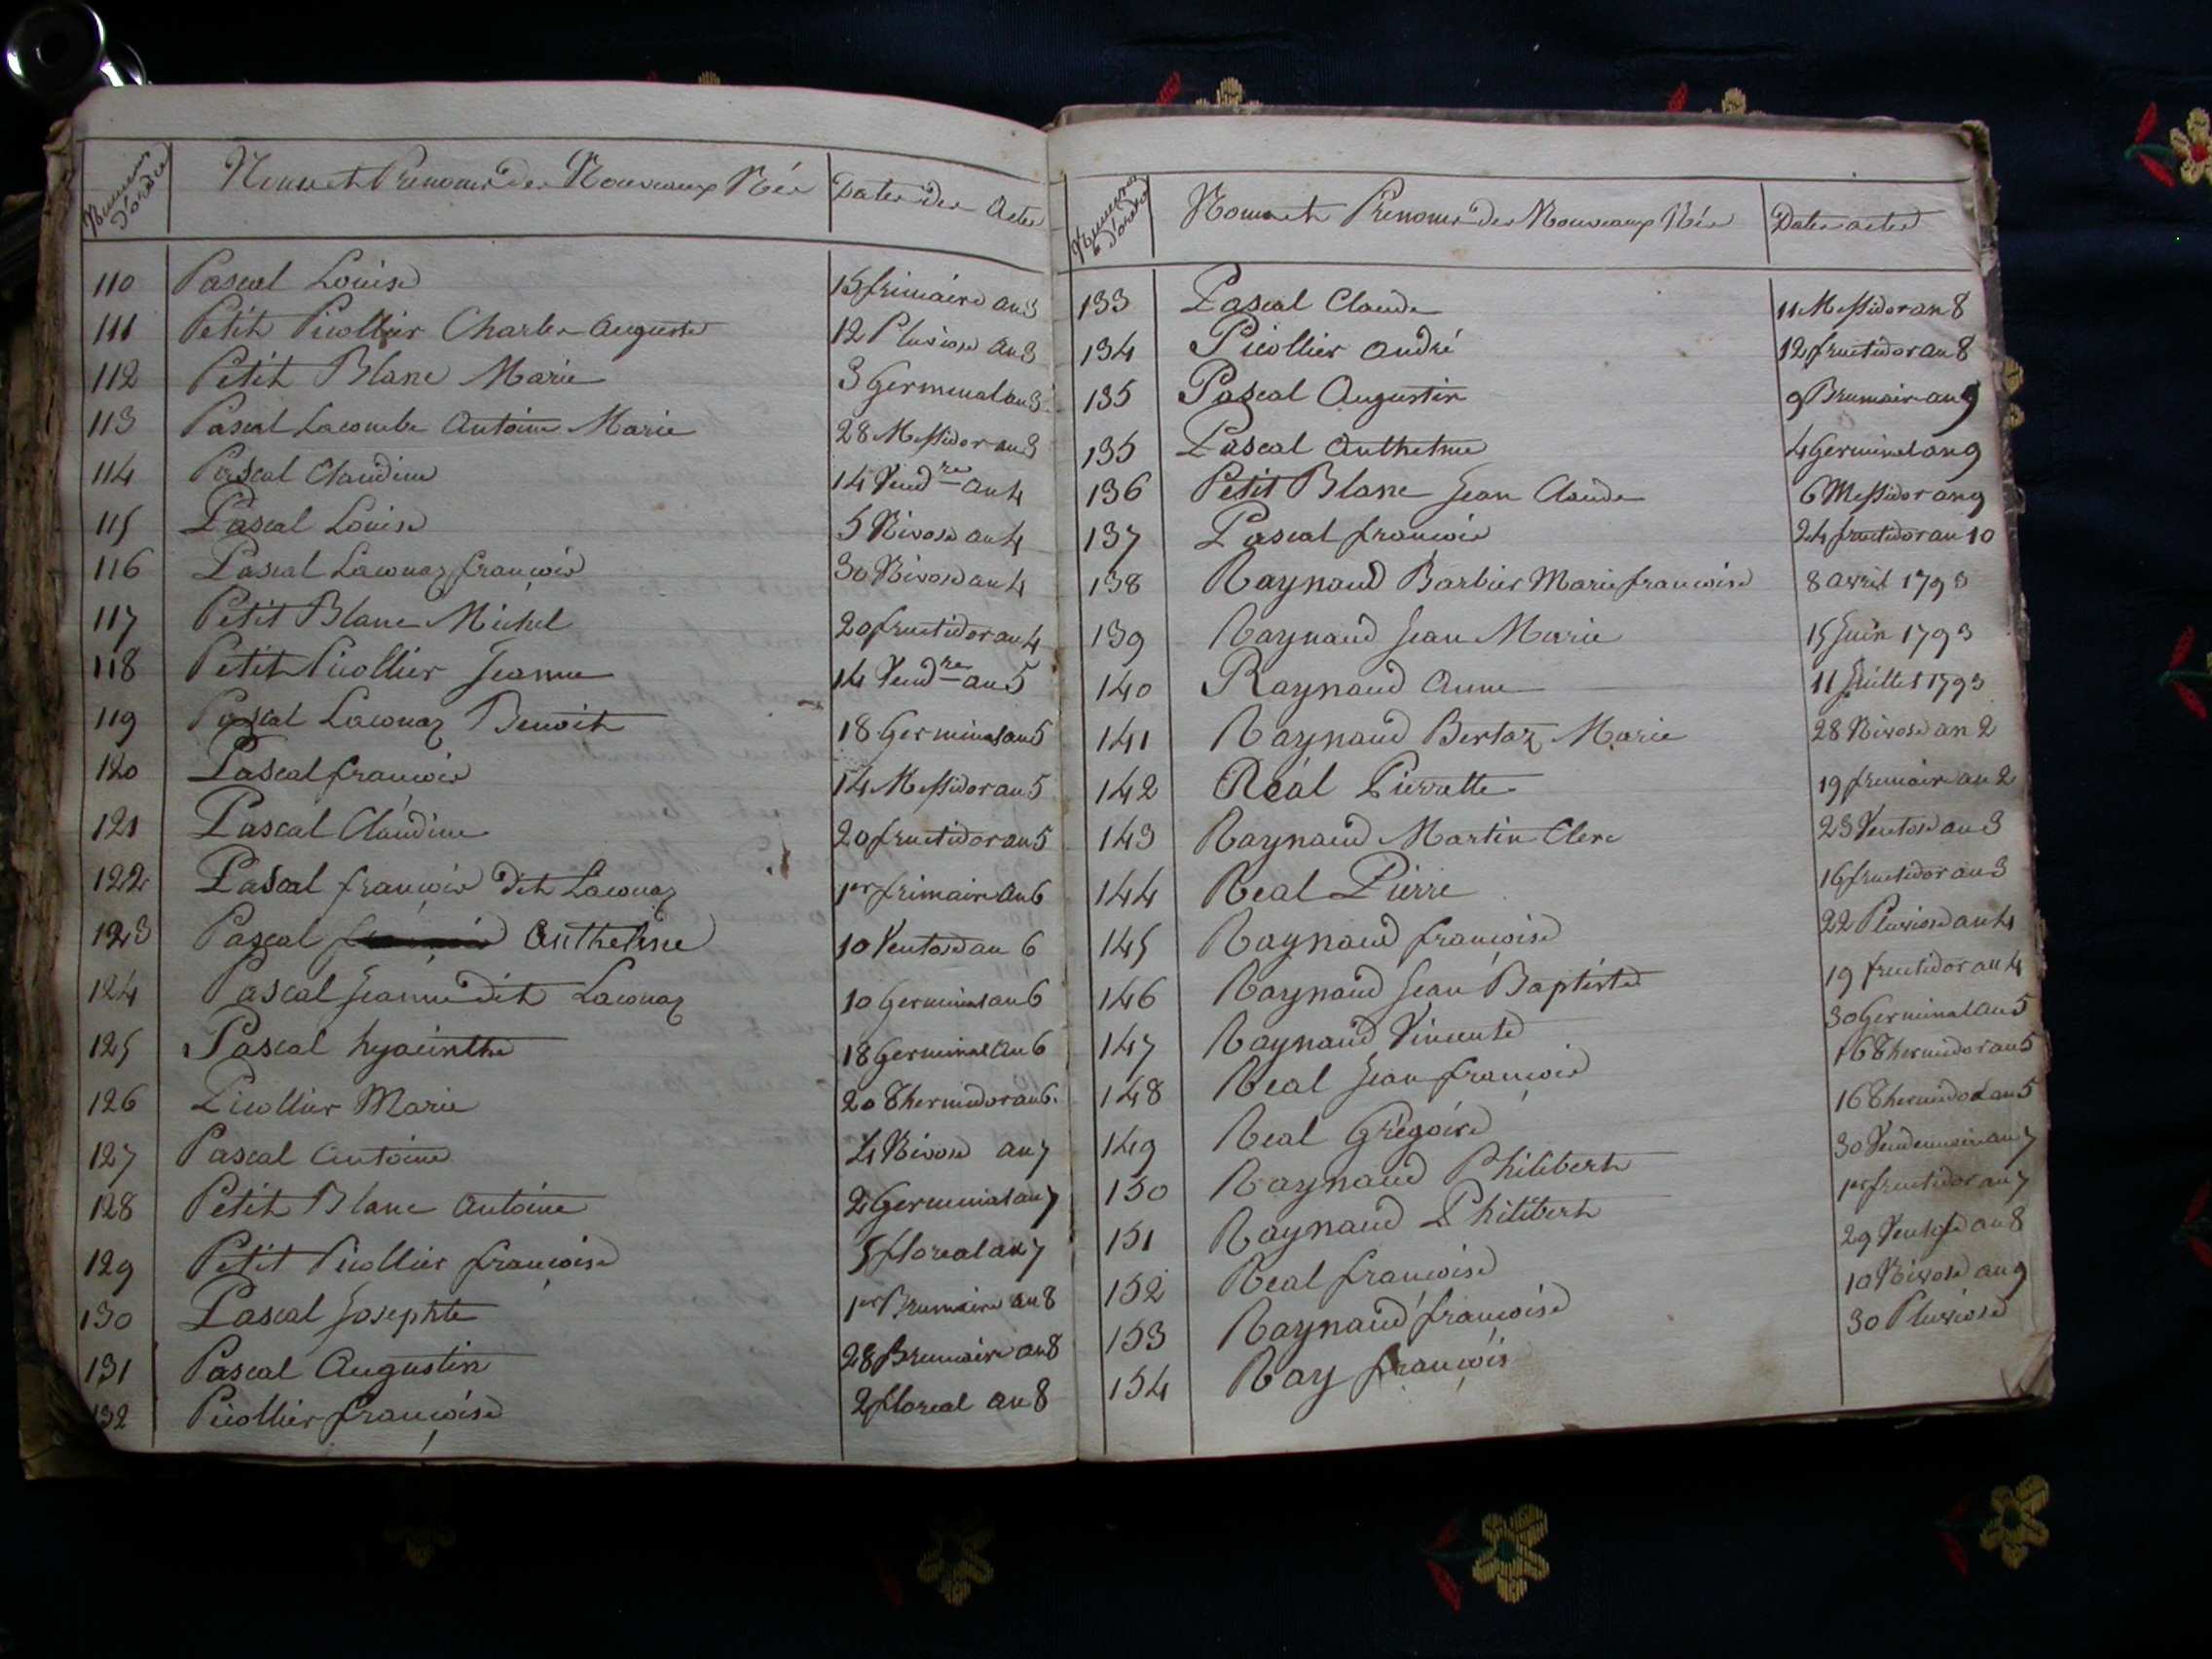 Numeros d'ordre Noms et Prenoms des Nouveaux Nés Dates des Actes
110 Pascal Louise 15 frimaire an 3
111 Petit Picollier Charles Auguste 12 Pluviose an 3
112 Petit Blanc Marie 3 Germinal an 3
113 Pascal Lacombe Antoine Marie 28 Messidor an 3
114 Pascal Claudine 14 Vend.re an 4
115 Pascal Louise 5 Nivose an 4
116 Pascal Laconaz françois 30 Nivose an 4
117 Petit Blanc Michel 20 fructidor an 4
118 Petit Picollier Jeanne 14 Vend.re an 5
119 Pascal Laconaz Benoit 18 Germinal an 5
120 Pascal françois 14 Messidor an 5
121 Pascal Claudine 20 fructidor an 5
122 Pascal françois dit Laconaz 1er frimaire an 6
123 Pascal Anthelme 10 Ventose an 6
124 Pascal Jeanne dit Laconaz 10 Germinal an 6
125 Pascal hyacinthe 18 Germinal an 6
126 Picollier Marie 20 Thermidor an 6.
127 Pascal Antoine 4 Nivose an 7
128 Petit Blanc Antoine 2 Germinal an 7
129 Petit Picollier françoise 5 floreal an 7
130 Pascal Josephte 1er Brumaire an 8
131 Pascal Augustin 28 Brumaire an 8
132 Picollier françoise 2 floreal an 8
Numeros d'ordre Noms et Prenoms des Nouveaux Nés Dates actes
133 Pascal Claude 11 Messidor an 8
134 Picollier André 12 fructidor an 8
135 Pascal Augustin 9 Brumaire an 9
135 Pascal Anthelme 4 Germinal an 9
136 Petit Blanc Jean Claude 6 Messidor an 9
137 Pascal françois 24 fructidor an 10
138 Raynaud Barbier Marie françoise 8 avril 1793
139 Raynaud Jean Marie 15 Juin 1793
140 Raynaud Anne 11 Juillet 1793
141 Raynaud Bertaz Marie 28 Nivose an 2
142 Réal Pierrette 19 frimaire an 2
143 Raynaud Martin Clerc 23 Ventose an 3
144 Real Pierre 16 fructidor an 3
145 Raynaud françoise 22 Pluviose an 4
146 Raynaud Jean Baptiste 19 fructidor an 4
147 Raynaud Vincente 30 Germinal an 5
148 Real Jean françois 16 Thermidor an 5
149 Real Grégoire 16 Thermidor an 5
150 Raynaud Philibert 30 Vendemiaire an 7
151 Raynaud Philibert 1er fructidor an 7
152 Real françoise 29 Ventose an 8
153 Raynaud françoise 10 Nivose an 9
154 Ray françois 30 Pluviose